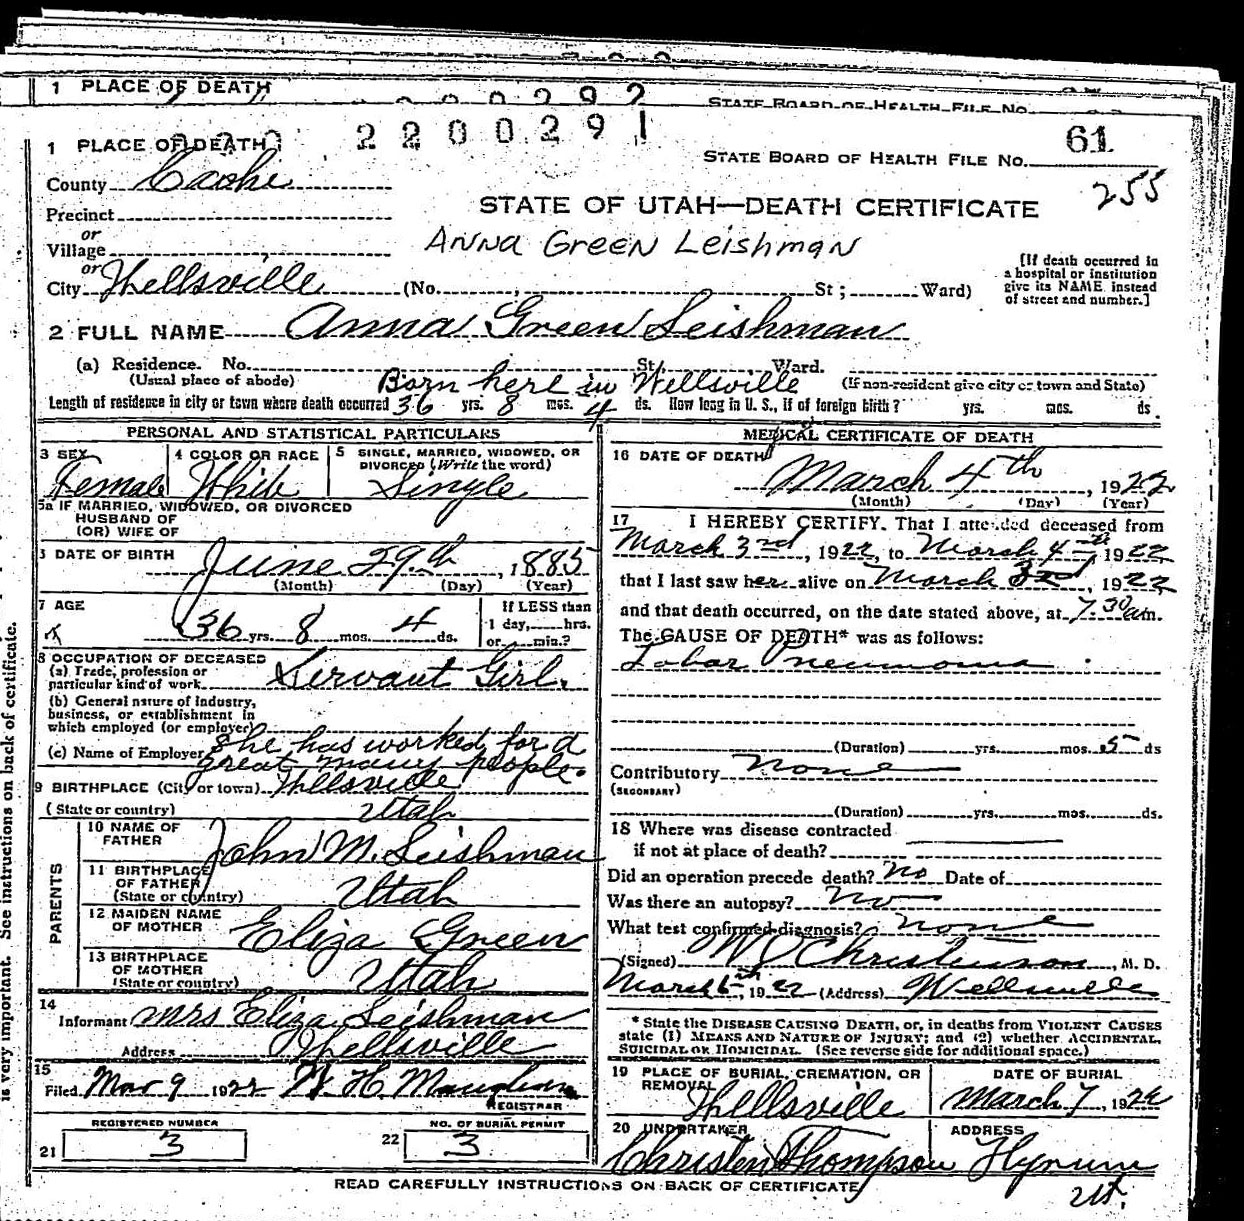 1 PLACE OF DEATH
2200292
STATE BOARD OF HEALTH FILE No.
1 PLACE OF DEATH 2200291
STATE BOARD OF HEALTH FILE No. 61
255
County Cache
Precinct
STATE OF UTAH—DEATH CERTIFICATE
or
Village
Anna Green Leishman
or
City Wellsville (No. St; Ward)
[If death occurred in
a hospital or institution
give its NAME instead
of street and number.]
2 FULL NAME Anna Green Leishman
(a) Residence. No. St. Ward.
(Usual place of abode) Born here in Wellsville (If non-resident give city or town and State)
Length of residence in city or town where death occurred 36 yrs. 8 mos. 4 ds. How long in U. S., if of foreign birth? yrs. mos. ds.
PERSONAL AND STATISTICAL PARTICULARS
3 SEX Female
4 COLOR OR RACE White
5 SINGLE, MARRIED, WIDOWED, OR
DIVORCED (Write the word)
Single
5a IF MARRIED, WIDOWED, OR DIVORCED
HUSBAND OF
(OR) WIFE OF
DATE OF BIRTH June 29th, 1885
(Month) (Day) (Year)
7 AGE 36 yrs. 8 mos. 4 ds.
If LESS than
1 day, hrs.
or min.?
8 OCCUPATION OF DECEASED
(a) Trade, profession or
particular kind of work Servant Girl.
(b) General nature of Industry,
business, or establishment in
which employed (or employer)
(c) Name of Employer She has worked for a
great many people.
9 BIRTHPLACE (City or town) Wellsville
(State or country) Utah
PARENTS
10 NAME OF
FATHER John M. Leishman
11 BIRTHPLACE
OF FATHER
(State or country) Utah
12 MAIDEN NAME
OF MOTHER Eliza Green
13 BIRTHPLACE
OF MOTHER
(State or country) Utah
14
Informant Mrs Eliza Leishman
Address Wellsville
15
Filed Mar 9 1922 W. H. Maughan
REGISTRAR
REGISTERED NUMBER
21 3
NO. OF BURIAL PERMIT
22 3
MEDICAL CERTIFICATE OF DEATH
16 DATE OF DEATH
March 4th, 1922
(Month) (Day) (Year)
17 I HEREBY CERTIFY, That I attended deceased from
March 3rd, 1922, to March 4th 1922
that I last saw her alive on March 3rd, 1922
and that death occurred, on the date stated above, at 7.30 a.m.
The CAUSE OF DEATH* was as follows:
Lobar Pneumonia
(Duration) yrs. mos. 5 ds
Contributory None
(SECONDARY)
(Duration) yrs. mos. ds.
18 Where was disease contracted
if not at place of death?
Did an operation precede death? No Date of
Was there an autopsy? No
What test confirmed diagnosis? none
(Signed) Christenson, M. D.
March 6th, 1922 (Address) Wellsville
* State the DISEASE CAUSING DEATH, or, in deaths from VIOLENT CAUSES
state (1) MEANS AND NATURE OF INJURY; and (2) whether ACCIDENTAL,
SUICIDAL OR HOMICIDAL. (See reverse side for additional space.)
19 PLACE OF BURIAL, CREMATION, OR
REMOVAL
Wellsville
DATE OF BURIAL
March 7, 1922
20 UNDERTAKER
Christen Thompson
ADDRESS
Hyrum
Ut.
READ CAREFULLY INSTRUCTIONS ON BACK OF CERTIFICATE
is very important. See instructions on back of certificate.